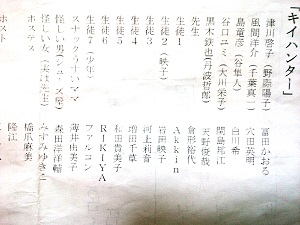 「キイハンター」
津川啓子(野際陽子) 冨田かおる
風間洋介(千葉真一) 穴田英明
島竜彦(谷隼人) 白川希
谷口ユミ(大川栄子)
黒木鉄也(丹波哲郎) 天野俊哉
先生 倉形裕代
生徒1 Akkin
生徒2(映子) 岩田映子
生徒3 河上利音
生徒4 増田千草
生徒5 和田貴美子
生徒6 RIKIYA
生徒7(少年) ファルコン
スナックうすいママ 薄井由美子
怪しい男(シューズ屋) 森田洋輔
怪しい女(実は先生) みずみゆきこ
ホステス 橋爪麻美
ホスト 隆江